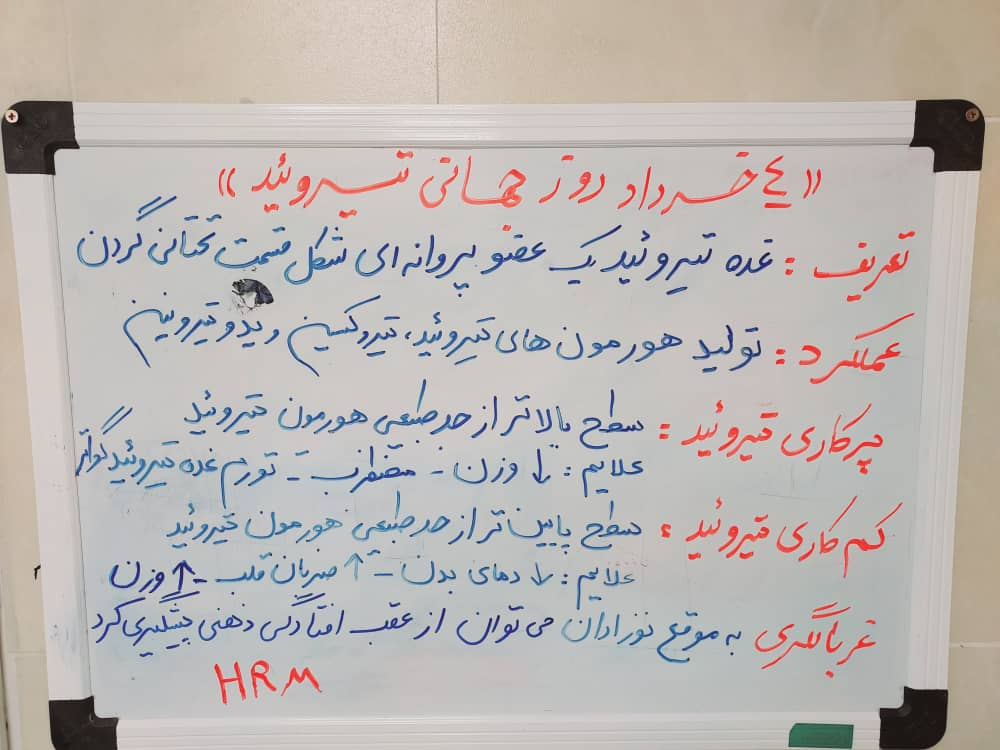 «٤ خرداد روز جهانی تیروئید»
تعریف : غده تیروئید یک عضو پروانه ای شکل قسمت تحتانی گردن
عملکرد : تولید هورمون های تیروئید، تیروکسین و یدوتیرونین
پرکاری تیروئید : سطح بالاتر از حد طبیعی هورمون تیروئید
علایم : ↓ وزن - مضطرب - تورم غده تیروئید گواتر
کم کاری تیروئید : سطح پایین تر از حد طبیعی هورمون تیروئید
علایم : ↓ دمای بدن - ↑ ضربان قلب - ↑ وزن
غربالگری به موقع نوزادان می توان از عقب افتادگی ذهنی پیشگیری کرد
HRM